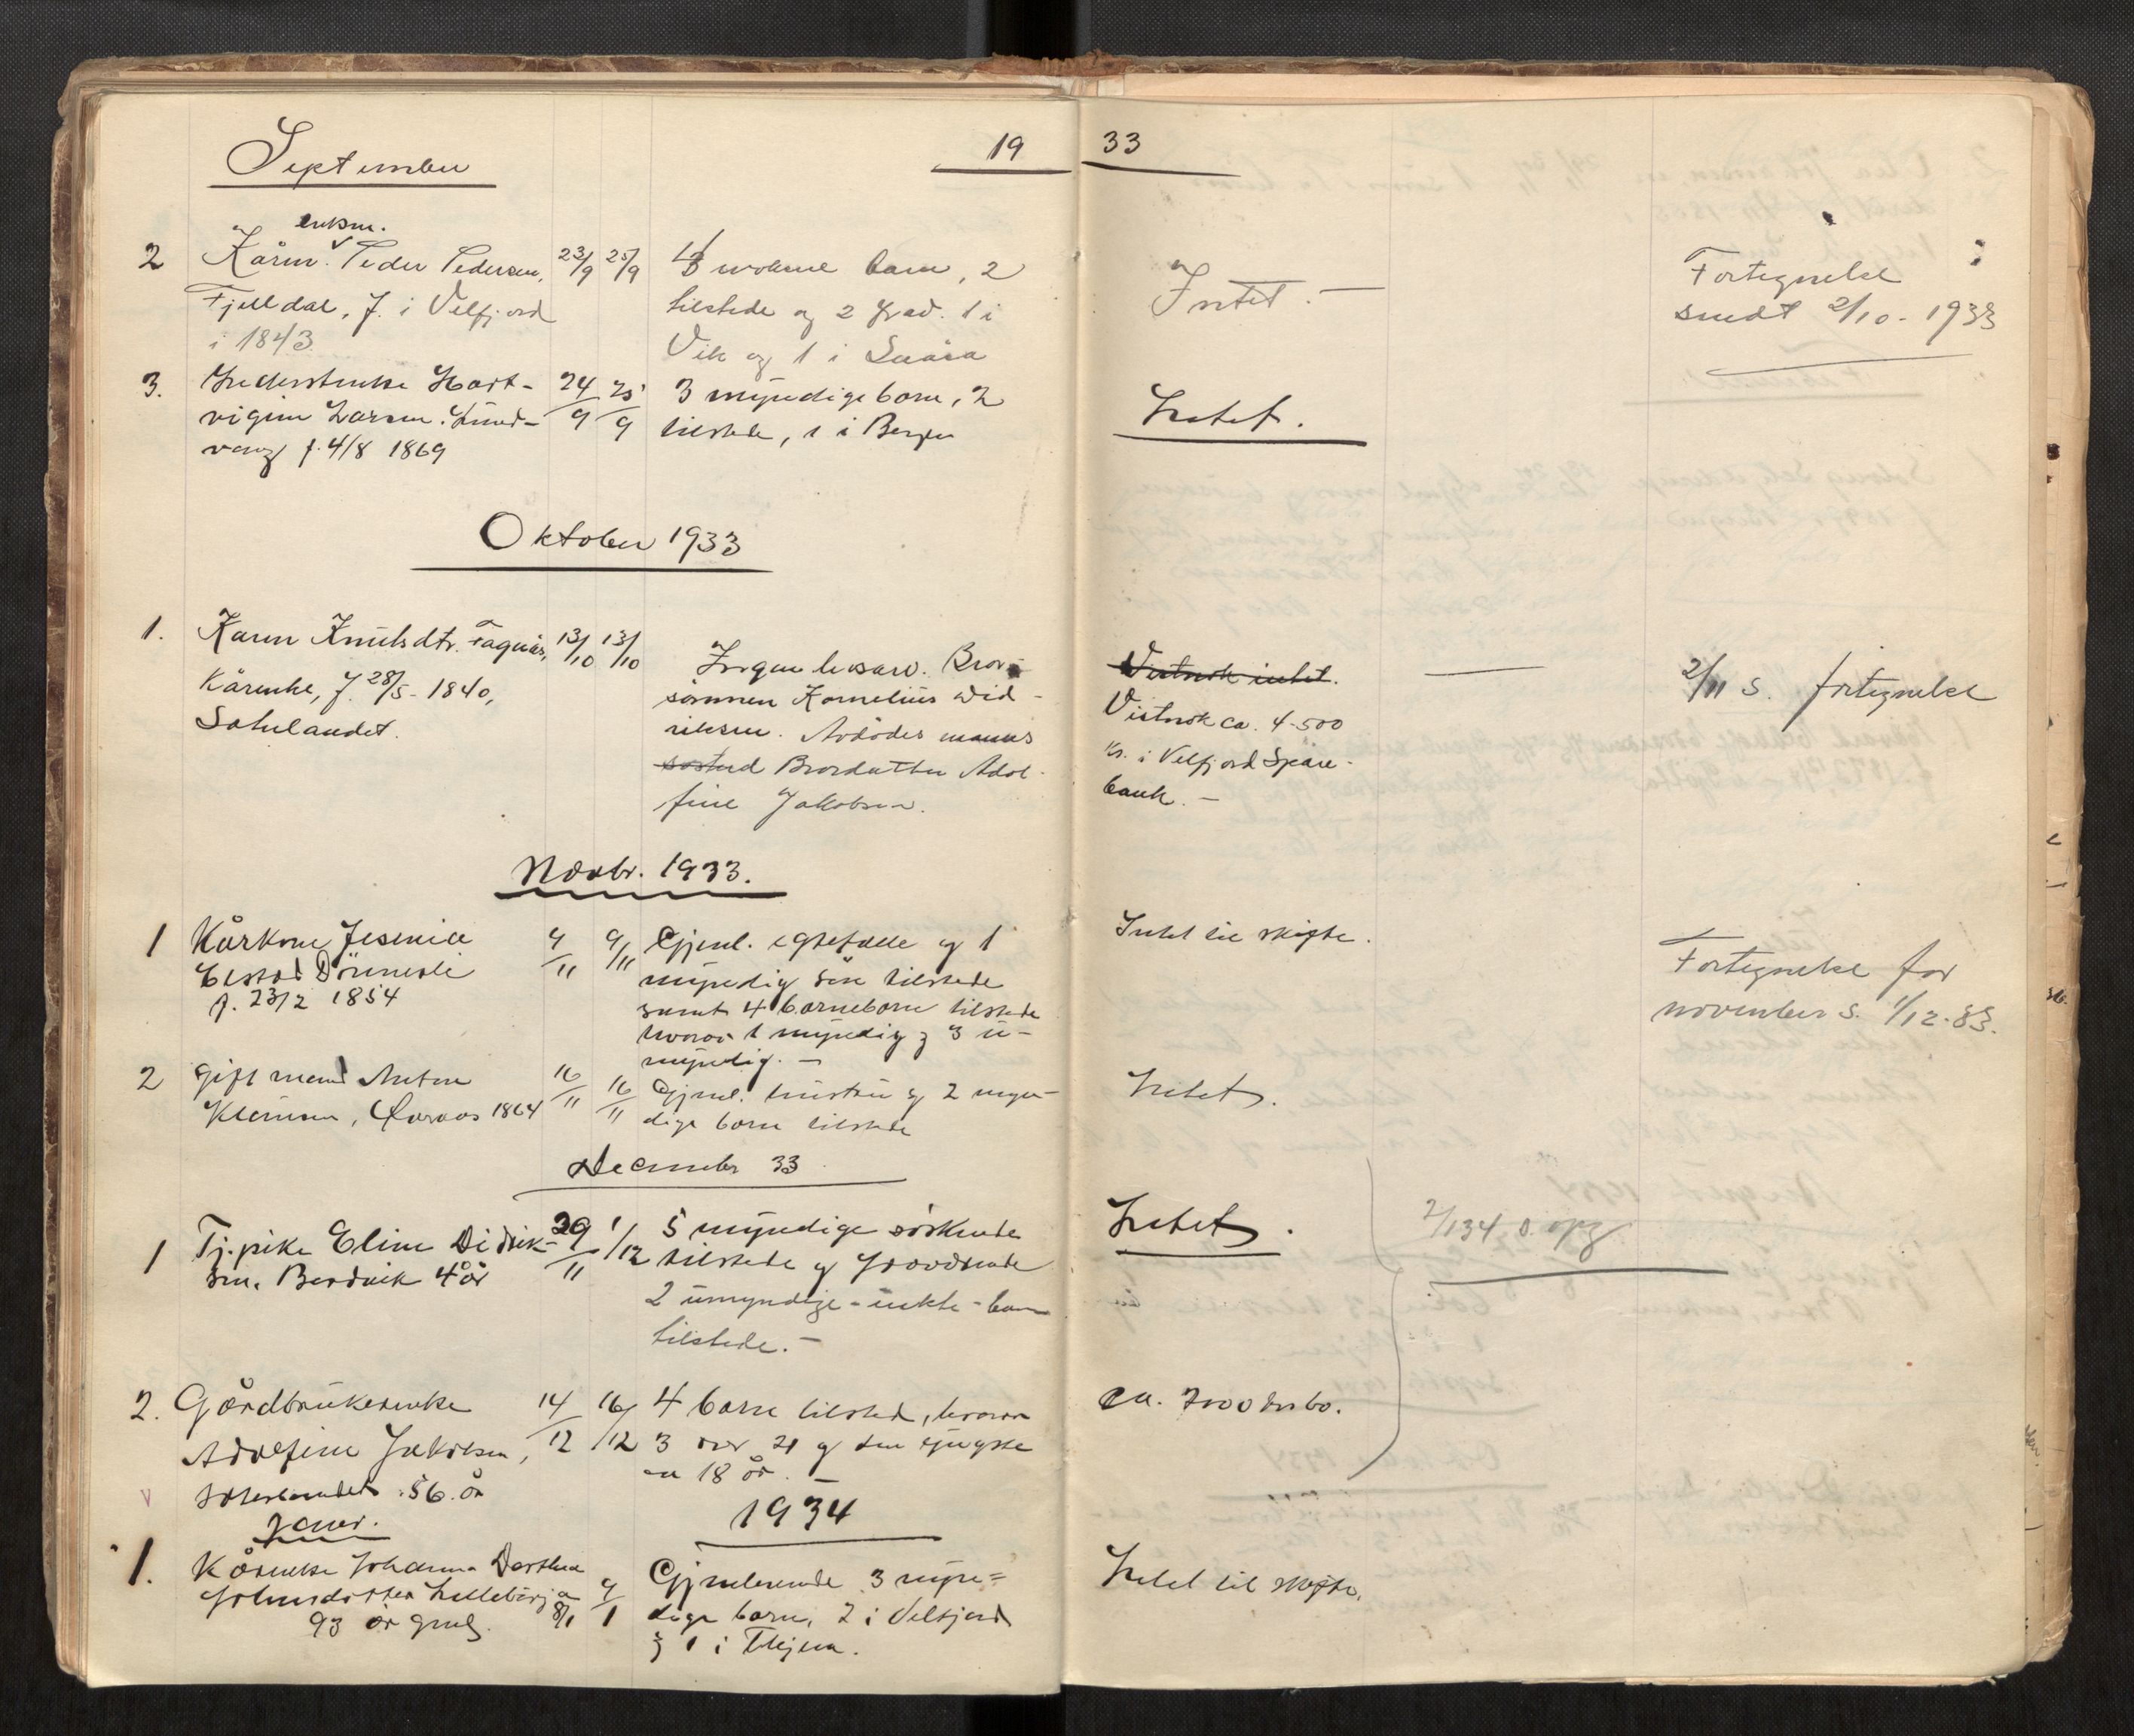 September 19 33
enkem.
2 Kårm. Peder Pedersen, 23/9 25/9 voksne barn, 2
Fjelldal, f. i Velfjord tilstede og 2 frav. 1 i
i 1843 Vik og 1 i Snåsa
Intet. — Fortegnelse
sendt 2/10 - 1933
3. Inderstenke Hart- 24/9 25/9 3 myndige barn, 2
vigine Larsen. Lund- tilstede, 1 i Bergen
vang f. 4/8 1869
Intet.
Oktober 1933
1. Karen Knutsdtr. Fagnäs, 13/10 13/10
Kårenke, f. 28/5 - 1840,
Ingen livsarv. Bror-
sønnen Kornelius Did-
riksen. Avdødes manns
søsted Brordatter Adol-
fine Jakobsen.
Vistnok intet. —
Vistnok ca. 4-500
kr. i Velfjord Spare-
bank. —
2/11 s. fortegnelse
Novbr. 1933.
1 Kårkone Jesenia 4/11 9/11 Gjenl. egtefelle og 1
myndig søn tilstede
f. 23/2 1854 samt 4 barnebarn tilstede
hvorav 1 myndig og 3 u-
myndig. —
Intet til skifte.
Fortegnelse for
november s. 1/12-33.
2 gift mand Anton 16/11 16/11 Gjenl. hustru og 2 myn-
1864 dige barn tilstede
Intet.
December 33
1 Tj.pike Eline Didrik- 29/11 1/12 5 myndige søskende
sen. Bordvik 4 år tilstede og fraværende
2 umyndige - ekte - barn
tilstede. —
Intet.
2/1 34 s. opg
2. Gårdbrukerenke 14/12 16/12 4 barn tilsted, hvorav
Adolfine Jakobsen, 3 over 21 og den yngste
56 år er 18 år. —
ca. 7000 i bo.
1934
Janr.
1. Kårenke Johanna Dorthea 8/1 9/1 Gjenlevende 3 myn=
Johnsdatter dige barn, 2 i Velfjord
93 år gml. og 1 i
Intet til skifte.